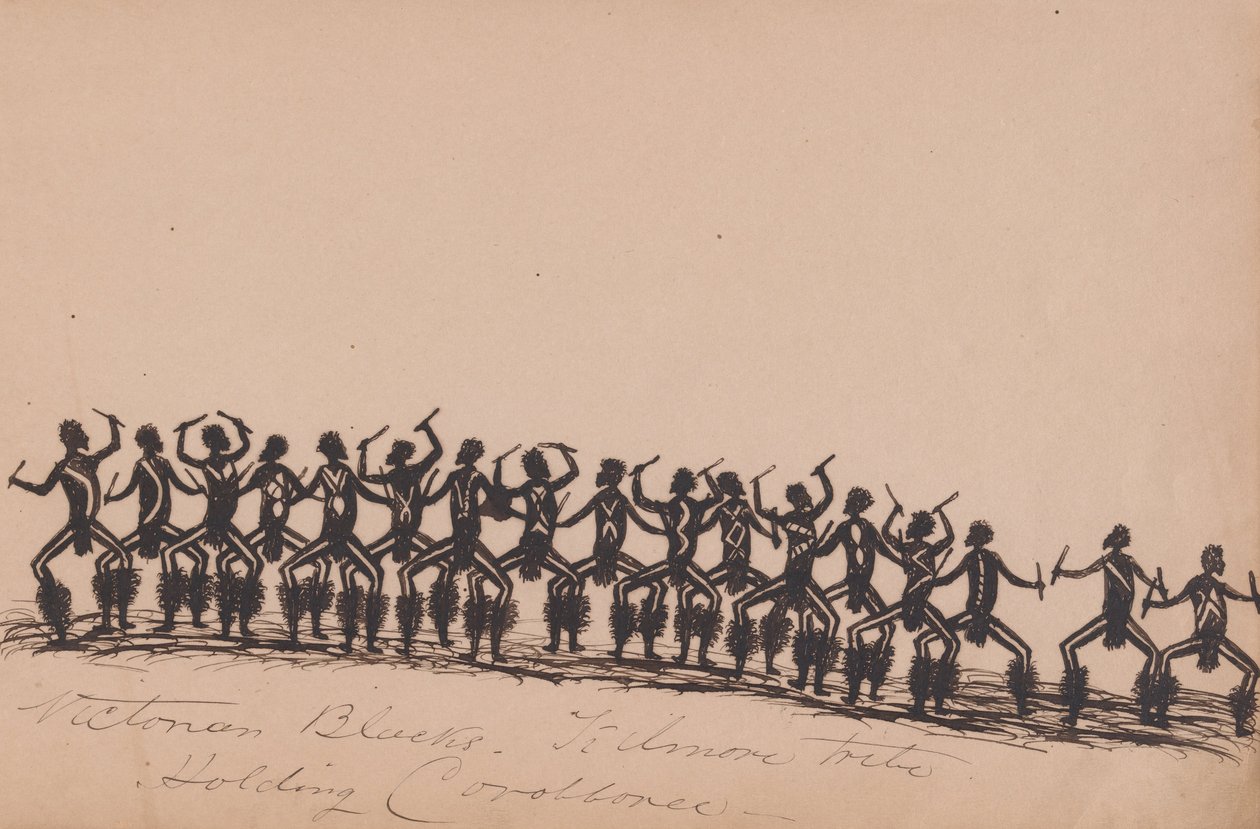 Victorian Blacks. Kilmore tribe
Holding Corobboree